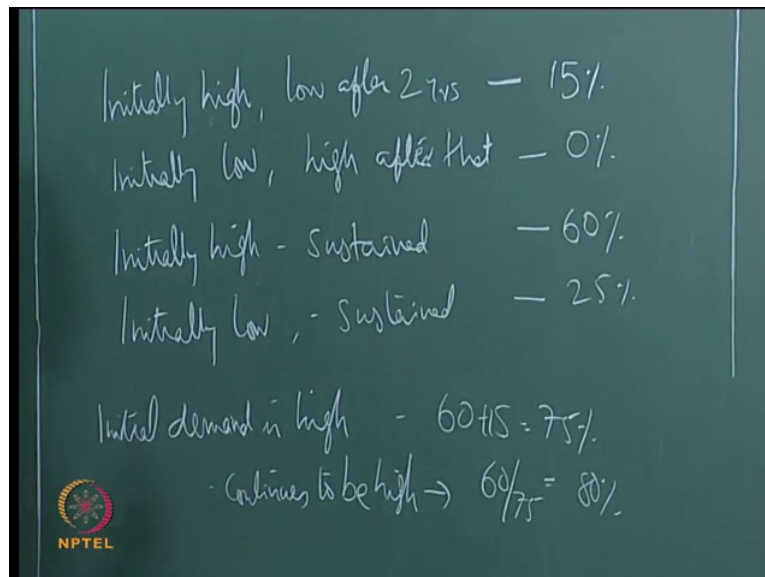 Initially high, low after 2 yrs — 15%
Initially low, high after that — 0%
Initially high - Sustained — 60%
Initially low, - Sustained — 25%
Initial demand is high - 60+15 = 75%
- continues to be high → 60/75 = 80%
NPTEL